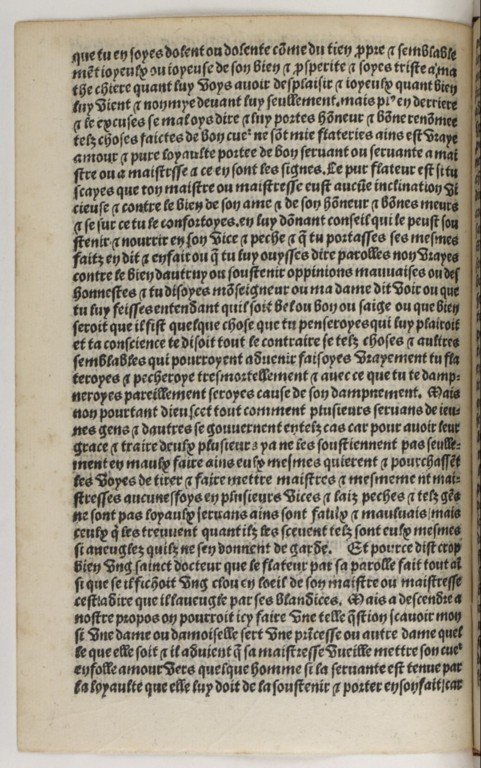 que tu en soyes dolent ou dolente cõme du tien ꝓpre ⁊ semblable
mẽt ioyeulx ou ioyeuse de son bien ⁊ ꝓsperite ⁊ soyes triste a ma
the chiere quant luy Voys avoir desplaisir ⁊ ioyeulx quant bien
luy Vient ⁊ non mye devant luy seullement. mais en derriere
⁊ le excuses se mal oys dire ⁊ luy portes hõneur ⁊ bõne renõmee
telz choses faictes de bon cueᷣ ne sõt mie flateries ains est Vraye
amour ⁊ pure loyaulte portee de bon servant ou servante a mai
stre ou a maistresse ⁊ ce en sont les signes. Le pur flateur est si tu
scayes que ton maistre ou maistresse eust aucũe inclination Vi
cieuse ⁊ contre le bien de son ame ⁊ de son hõneur ⁊ bõnes meurs
⁊ se sur ce tu le confortoyes. en luy dõnant conseil qui le peust sou
stenir ⁊ nourrir en son Vice ⁊ peche ⁊ q̃ tu portasses ses mesmes
faitz en dit ⁊ en fait ou q̃ tu luy ouysses dire parolles non Vrayes
contre le bien dautruy ou soustenir oppinions mauuaises ou des
honnestes ⁊ tu disoyes mõseigneur ou ma dame dit Voir ou que
tu luy feisses entendant quil soit bel ou bon ou saige ou que bien
seroit que il fist quelque chose que tu penseroyes qui luy plairoit
et ta conscience te disoit tout le contraire se telz choses ⁊ aultres
semblables qui pourroyent aduenir faisoyes Vrayement tu fla
teroyes ⁊ pecheroye tresmortellement ⁊ avec ce que tu te damp⸗
neroyes pareillement seroyes cause de son dampnement. Mais
non pourtant dieu scet tout comment plusieurs seruans de ieu⸗
nes gens ⁊ dautres se gouuernent en telz cas car pour avoir leur
grace ⁊ traire deulx plusieurs ya ne les soustiennent pas seulle⸗
ment en maulx faire ains eulx mesmes quierent ⁊ pourchassẽt
les Voyes de tirer ⁊ faire mettre maistres ⁊ mesmement mai⸗
stresses aucunesfoys en plusieurs Vices ⁊ laiz peches ⁊ telz gẽs
ne sont pas loyaulx seruans ains sont faulx ⁊ mauluais / mais
ceulx q̃ les treuuent quant ilz les sceuent telz sont eulx mesmes
si aueuglez quilz ne sen donnent de garde. Et pource dist trop
bien Vng sainct docteur que le flateur par sa parolle fait tout aĩ
si que se il fichoit Vng clou en loeil de son maistre ou maistresse
cestadire que il laueugle par ses blandices. Mais a descendre a
nostre propos on pourroit icy faire Vne telle q̃stion scauoir mon
si Vne dame ou damoiselle sert Vne prĩcesse ou autre dame quel
le que elle soit ⁊ il aduient q̃ sa maistresse Vueille mettre son cueᷣ
en folle amour Vers quelque homme si la servante est tenue par
la loyaulte que elle luy doit de la soustenir ⁊ porter en son fait / car